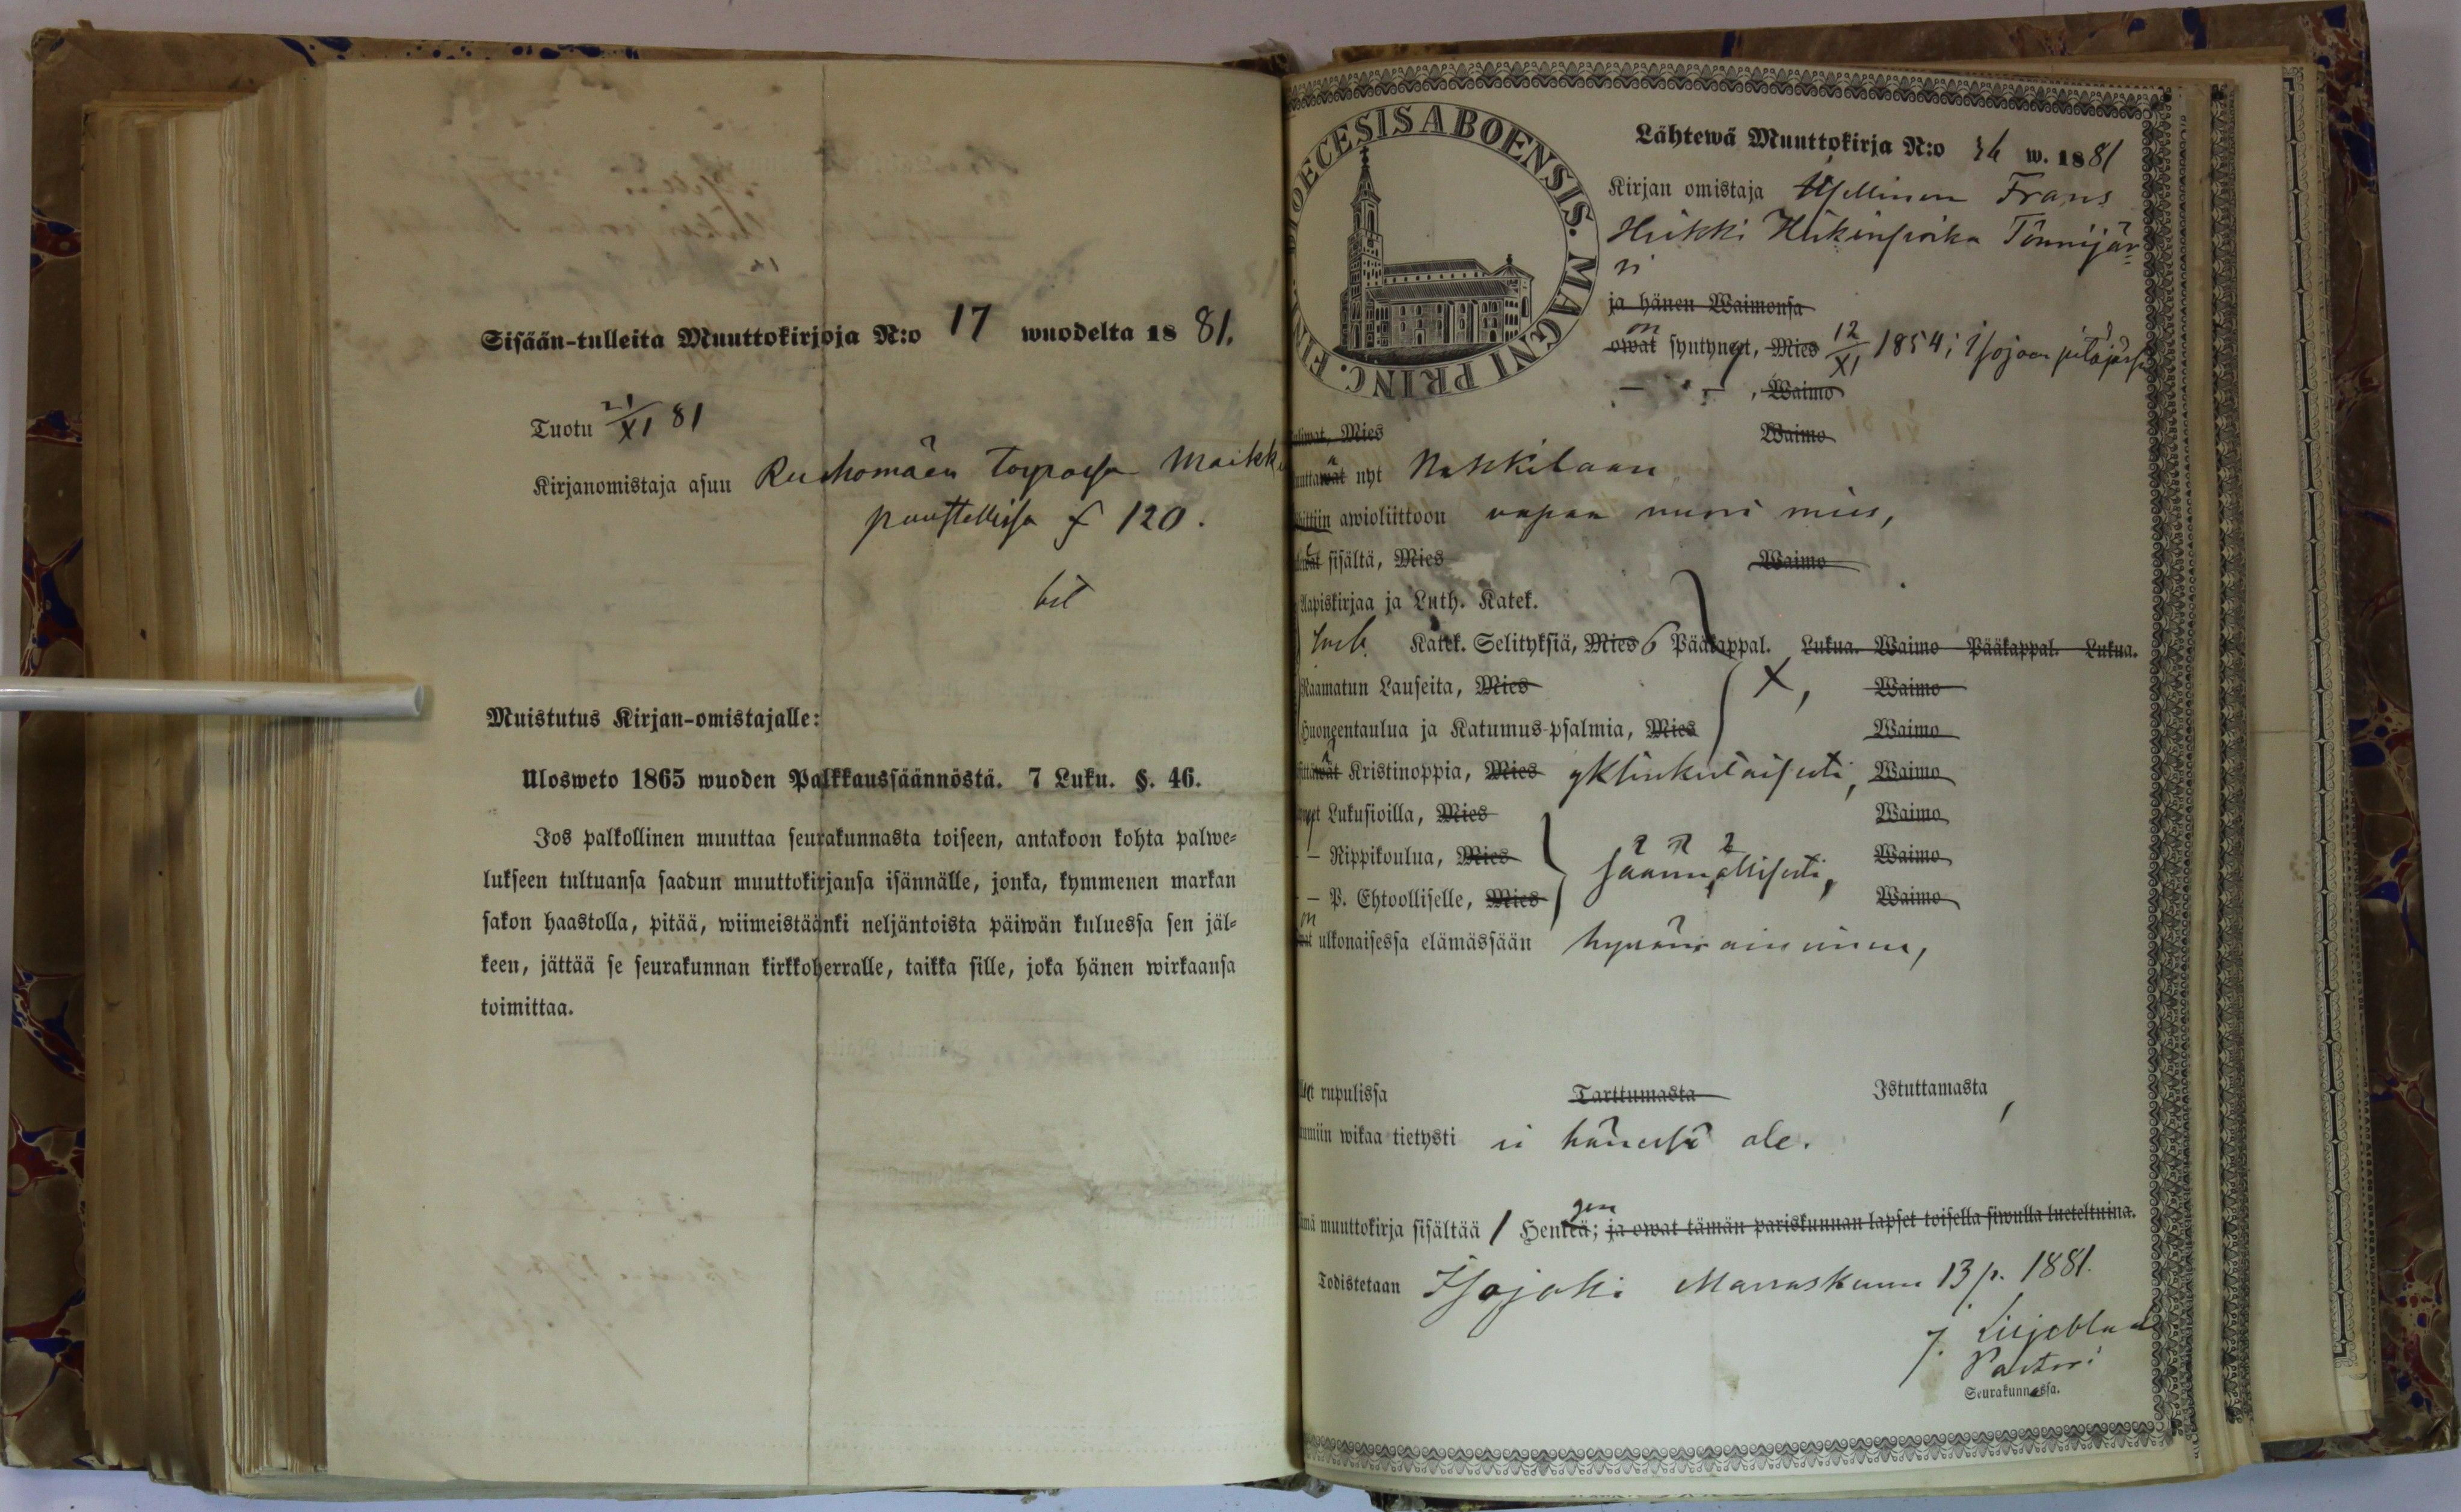 Sisään-tulleita Muuttokirjoja N:o 17 wuodelta 1881.
Tuotu 21/XI 81
Kirjanomistaja asuu Ruohomäen torpassa Maikki
puustellissa f 120.
Muistutus Kirjan-omistajalle:
Ulosweto 1865 wuoden Palkkaussäännöstä. 7 Luku. §. 46.
Jos palkollinen muuttaa seurakunnasta toiseen, antakoon kohta palwe-
lukseen tultuansa saadun muuttokirjansa isännälle, jonka, kymmenen markan
sakon haastolla, pitää, wiimeistäänki neljäntoista päiwän kuluessa sen jäl-
keen, jättää se seurakunnan kirkkoherralle, taikka sille, joka hänen wirkaansa
toimittaa.
DIOECESIS ABOENSIS. MAGNI PRINC. FINL.
Lähtewä Muuttokirja N:o w. 1881
Kirjan omistaja Itsellinen Frans
Heikki Heikinpoika Tönnijär=
vi
ja hänen Waimonsa
on
owat syntynyt, Mies 12/XI 1854 ; Isojoen pitäjässä
, Waimo
Mies Waimo
nyt Nakkilaan
awioliittoon vapaa nuori mies,
sisältä, Mies Waimo
Aapiskirjaa ja Luth. Katek.
Katek. Selityksiä, Mies 6 Pääkappal. Lukua. Waimo Pääkappal. Lukua.
Raamatun Lauseita, Mies X, Waimo
Huoneentaulua ja Katumus-psalmia, Mies Waimo
Kristinoppia, Mies yksinkertaisesti, Waimo
Lukusioilla, Mies Waimo
— Rippikoulua, Mies säännöllisesti, Waimo
— P. Ehtoolliselle, Mies Waimo
on
ulkonaisessa elämässään hyvämaineinen,
rupulissa Tarttumasta Istuttamasta,
wikaa tietysti ei hänessä ole.
gen
muuttokirja sisältää 1 Henkeä; ja owat tämän pariskunnan lapset toisella siwulla lueteltuina.
Todistetaan Isojoki Marraskuun 13 p. 1881.
J. Liljeblad
Pastori
Seurakunnassa.